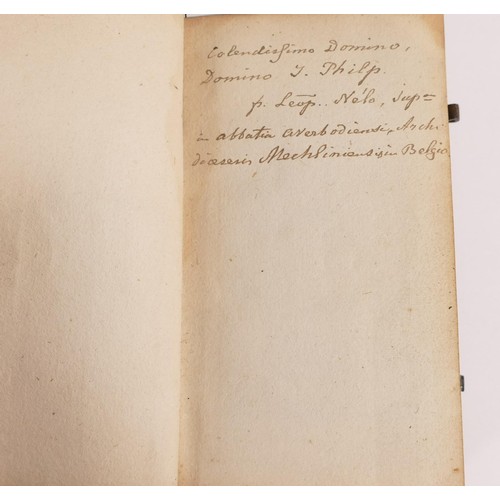 Colendissimo Domino,
Domino J. Philp.
p. Leop. Nélo, Sup=
in abbatia averbodiensi, Archi
diœcesis, Mechliniensis, in Belgio